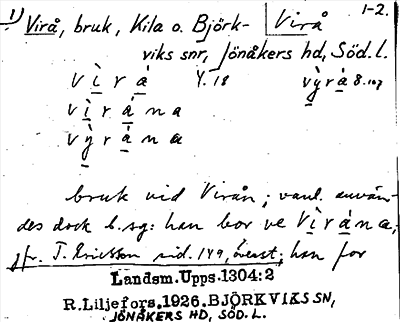 1) Virå, bruk, Kila o. Björk- Virå 1-2.
viks snr, Jönåkers hd, Söd. l.
v ì r á 4.18 v ỳ r á 8.107
v ì r á n a
v ỳ r á n a
bruk vid Virån; vanl. använ-
des dock b. sg: han bor ve V ì r á n a,
jfr. T. Ericsson sid. 149, överst; han for
Landsm. Upps. 1304:2
R. Liljefors. 1926. BJÖRKVIKS SN,
JÖNÅKERS HD, SÖD. L.